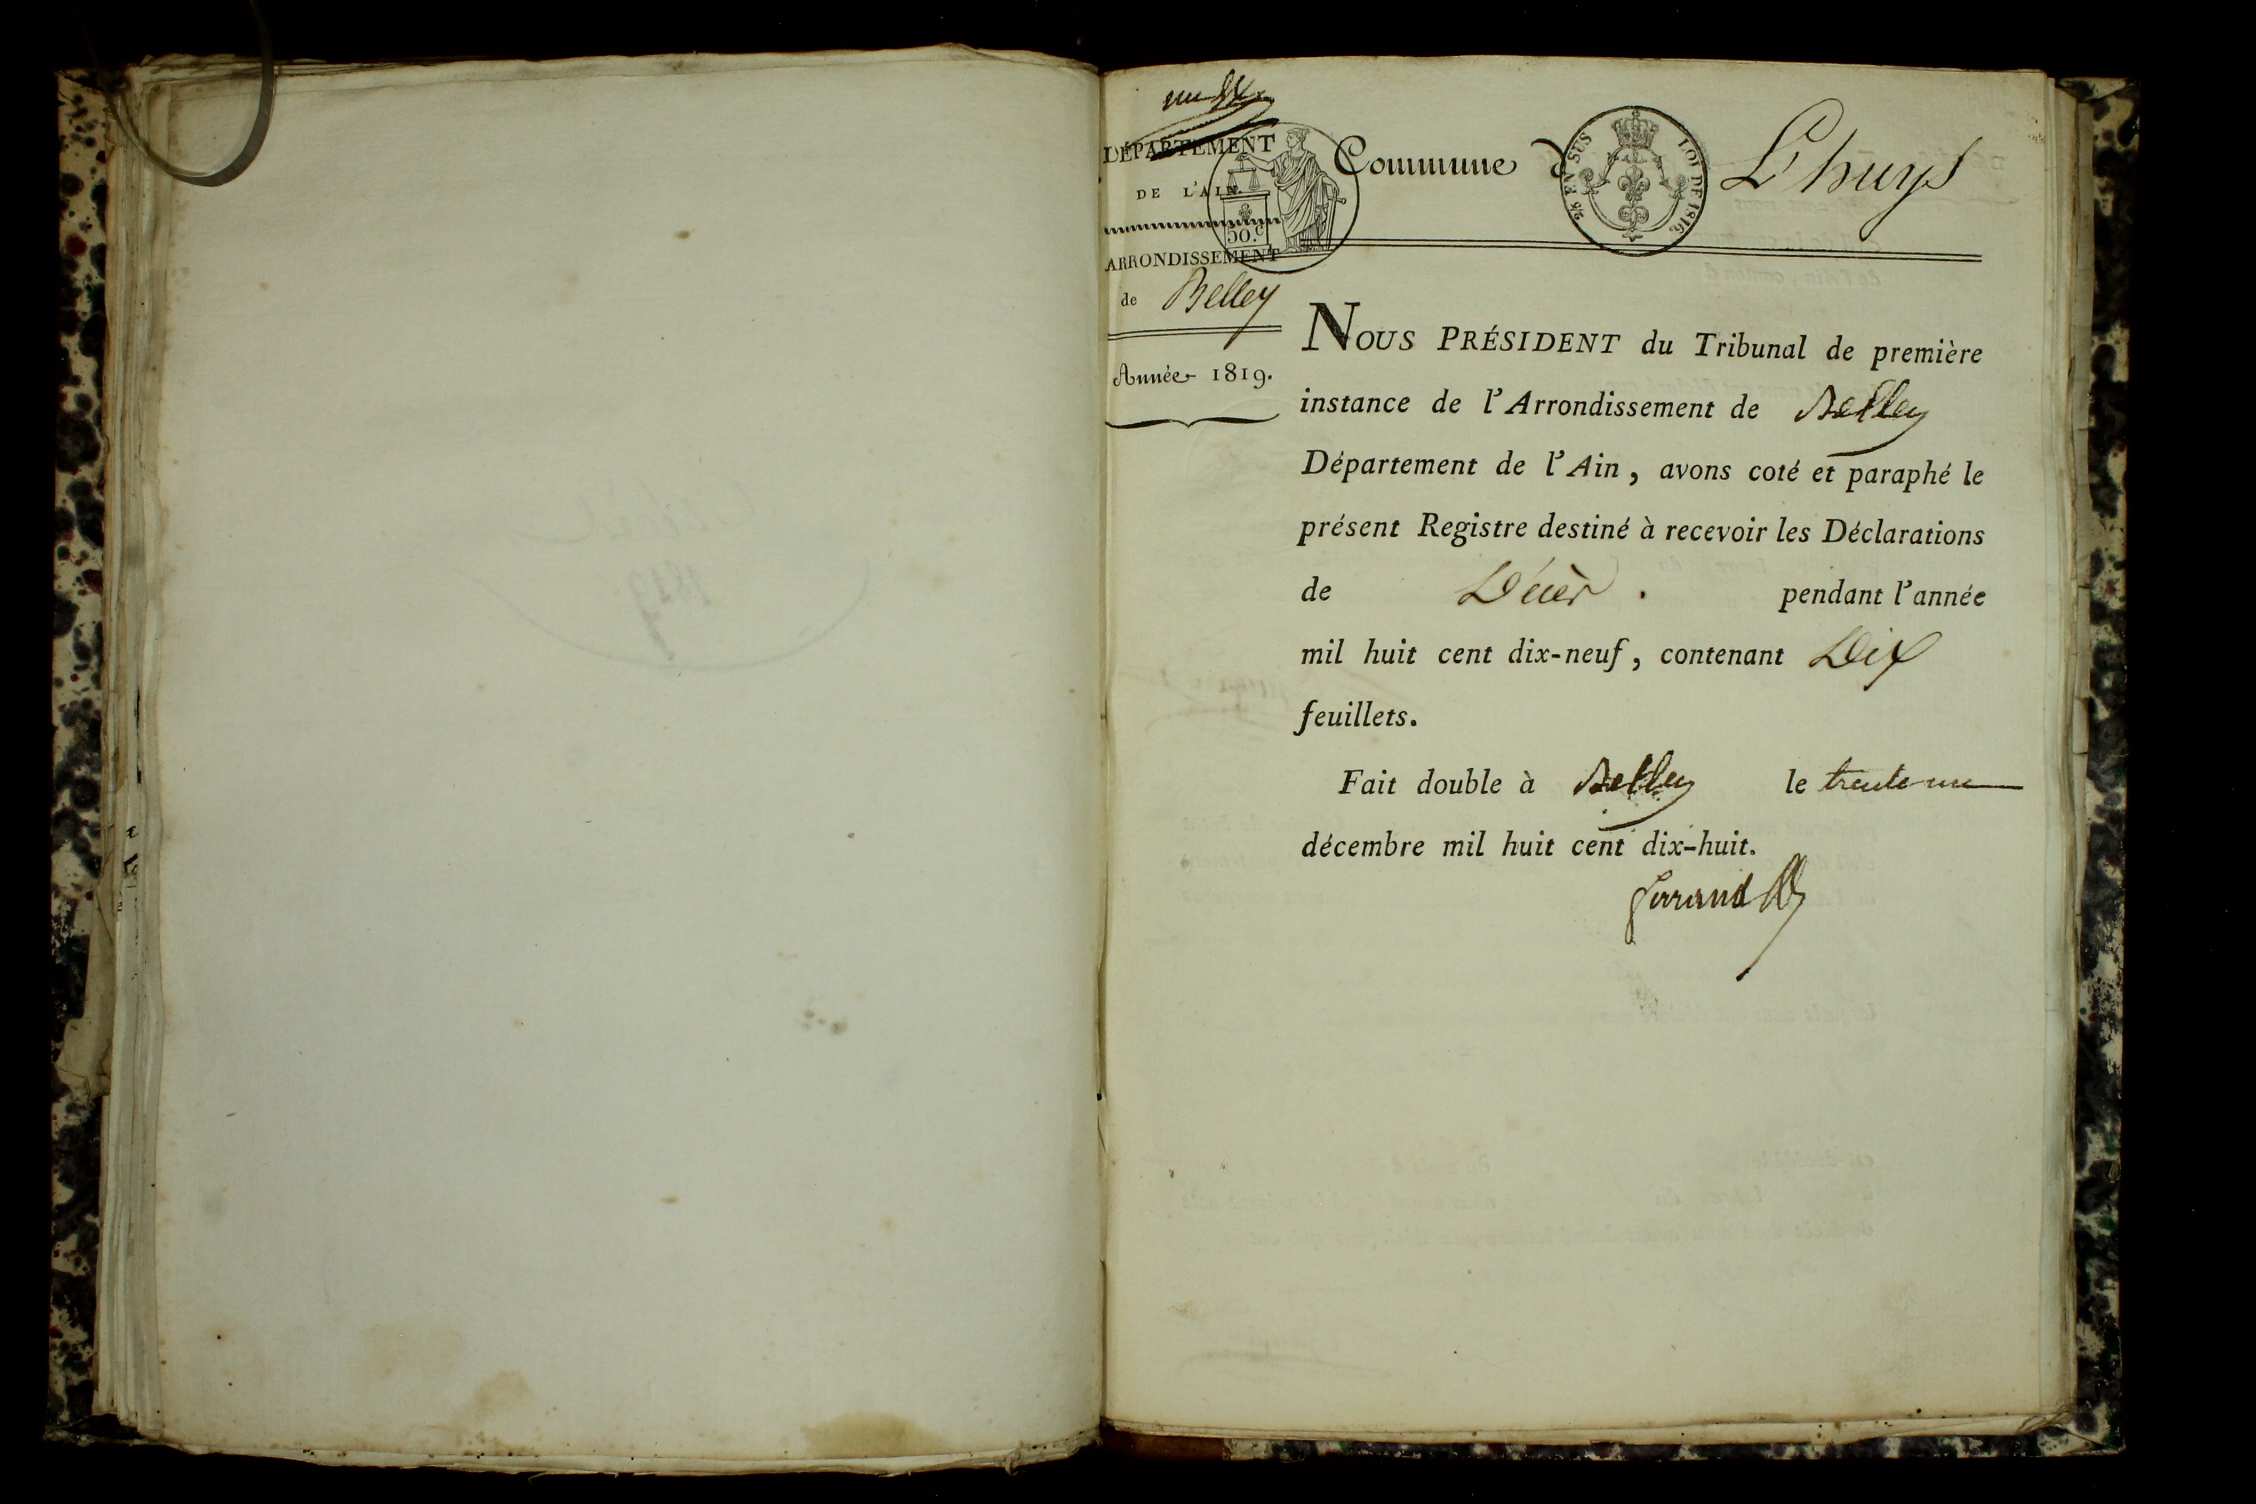 DÉPARTEMENT
DE L'AIN.
50.c
ARRONDISSEMENT
de Belley
Année 1819.
Commune d
25 EN SUS
LOI DE 1816.
Lhuys
NOUS PRÉSIDENT du Tribunal de première
instance de l'Arrondissement de Belley
Département de l'Ain, avons coté et paraphé le
présent Registre destiné à recevoir les Déclarations
de Décès. pendant l'année
mil huit cent dix-neuf, contenant Dix
feuillets.
Fait double à Belley le trente-un
décembre mil huit cent dix-huit.